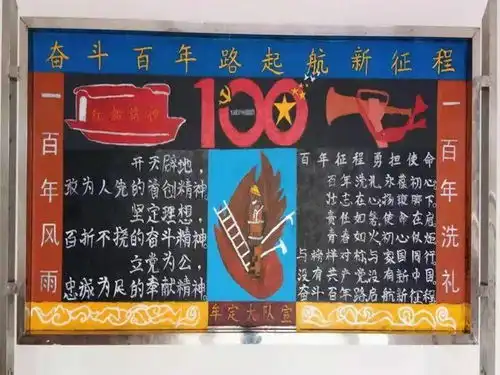 奋斗百年路起航新征程
一百年风雨
红船精神
100
开天辟地,
敢为人党的首创精神
坚定理想,
百折不挠的奋斗精神
立党为公,
忠诚为民的奉献精神。
百年征程勇担使命
百年洗礼永葆初心
壮志在
责任如 使命在肩
青春如火初心
与 共 家国同行
没有 产党没有新中国
奋斗百年路启航新征程
一百年洗礼
牟定大队宣